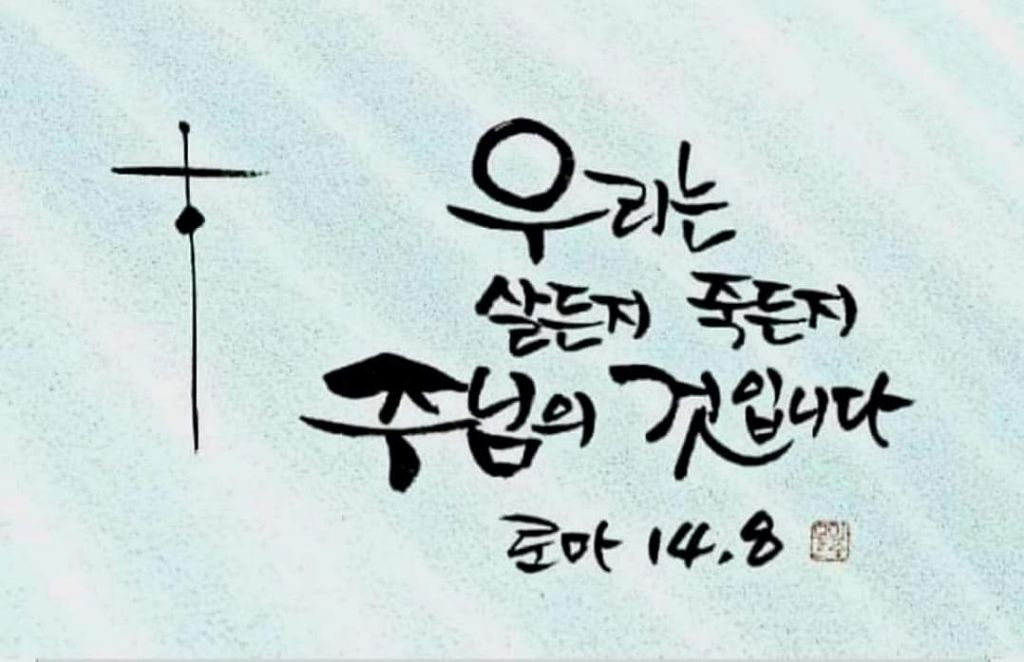 우리는
살든지 죽든지
주님의 것입니다
로마 14.8